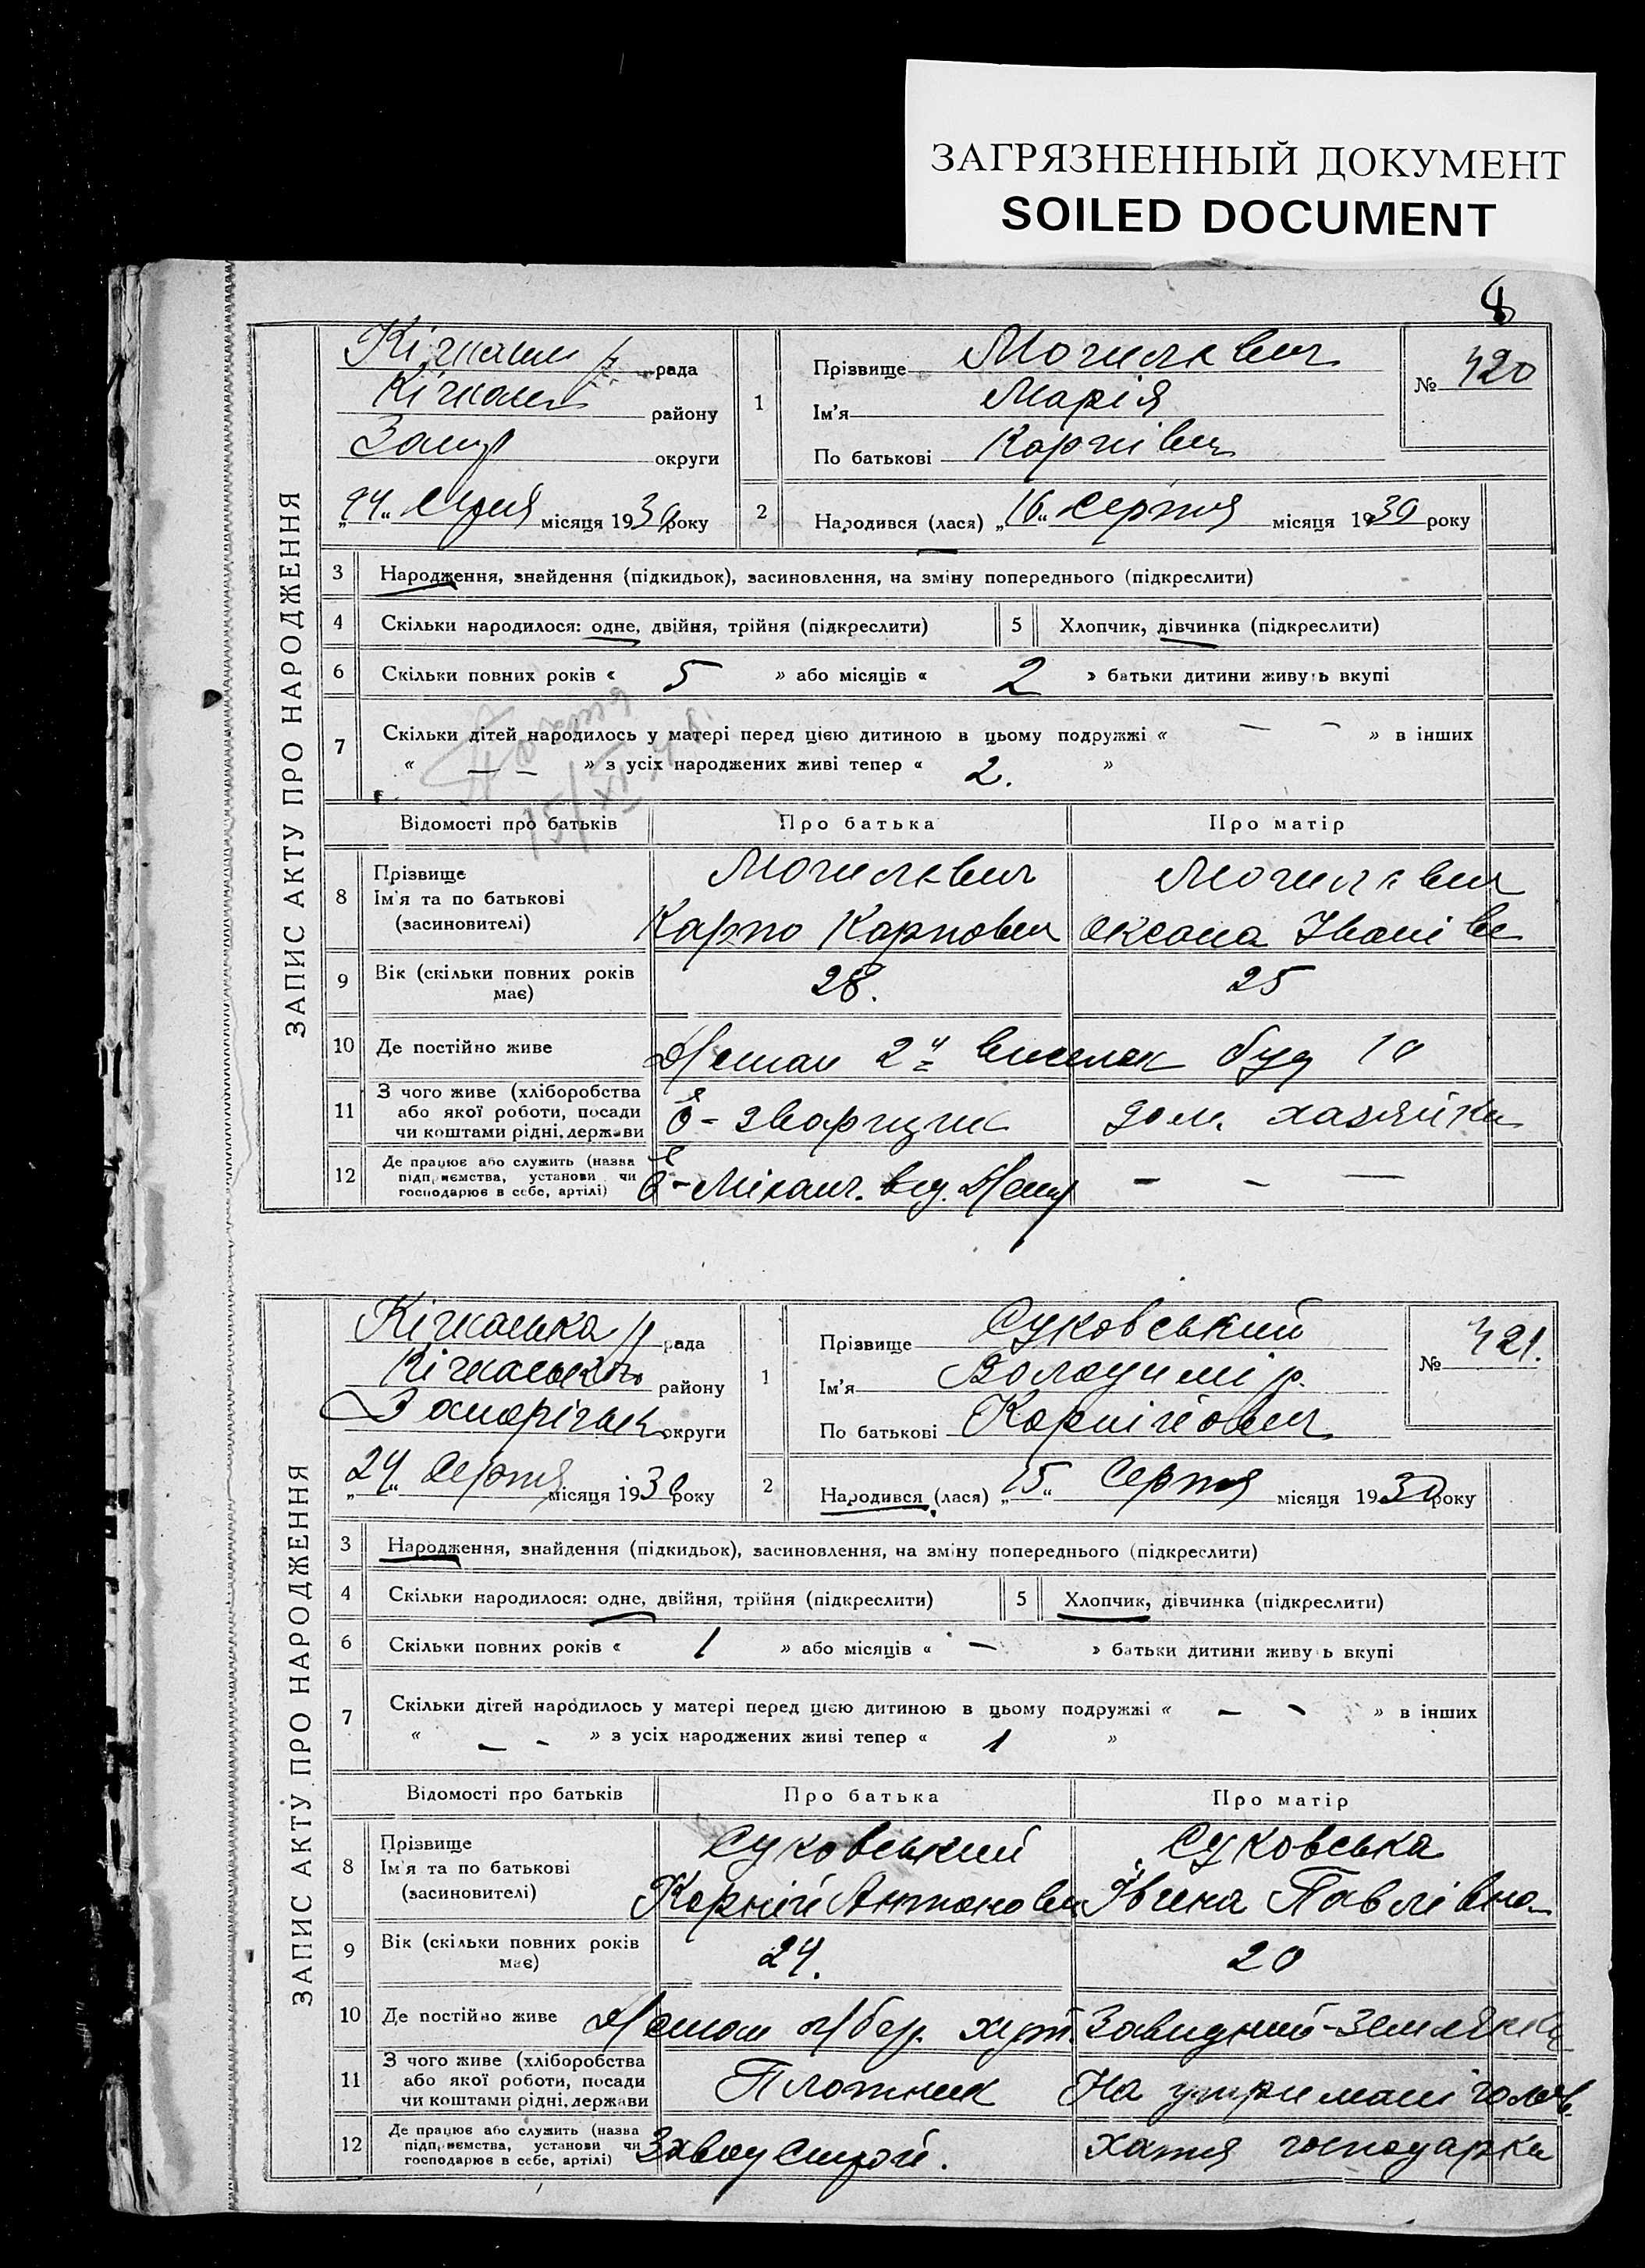 ЗАГРЯЗНЕННЫЙ ДОКУМЕНТ
SOILED DOCUMENT
8
ЗАПИС АКТУ ПРО НАРОДЖЕННЯ
рада
району
Запор округи
"24" серпня місяця 1930 року
1
Прізвище
Ім'я Марія
По батькові Карпівн
№ 420
2 Народився (лася) "16" серпня місяця 1930 року
3 Народження, знайдення (підкидьок), засиновлення, на зміну попереднього (підкреслити)
4 Скільки народилося: одне, двійня, трійня (підкреслити) 5 Хлопчик, дівчинка (підкреслити)
6 Скільки повних років « 5 » або місяців « 2 » батьки дитини живуть вкупі
7 Скільки дітей народилось у матері перед цією дитиною в цьому подружжі « — — » в інших
« — — » з усіх народжених живі тепер « 2. »
15/XI
Відомості про батьків Про батька Про матір
8 Прізвище
Ім'я та по батькові
(засновителі)
Карпо Карпович Оксана Івані
9 Вік (скільки повних років має) 28. 25
10 Де постійно живе 2й виселок буд 10
11 З чого живе (хліборобства або якої роботи, посади чи коштами рідні, держави Ел-зварщик дом. хазяйка
12 Де працює або служить (назва підприємства, установи чи господарює в себе, артілі) — — —
ЗАПИС АКТУ ПРО НАРОДЖЕННЯ
Кічкаська рада
Кічкаського району
Запоріжськ округи
"24" серпня місяця 1930 року
1
Прізвище Суковський
Ім'я Володимір.
По батькові Корнійович
№ 421.
2 Народився (лася) "15" серпня місяця 1930 року
3 Народження, знайдення (підкидьок), засиновлення, на зміну попереднього (підкреслити)
4 Скільки народилося: одне, двійня, трійня (підкреслити) 5 Хлопчик, дівчинка (підкреслити)
6 Скільки повних років « 1 » або місяців « — » батьки дитини живуть вкупі
7 Скільки дітей народилось у матері перед цією дитиною в цьому подружжі « — — » в інших
« — — » з усіх народжених живі тепер « 1 »
Відомості про батьків Про батька Про матір
8 Прізвище
Ім'я та по батькові
(засновителі)
Суковський Суковська
Корній Антонович Ївгена Павлівна
9 Вік (скільки повних років має) 24. 20
10 Де постійно живе хут. Завидний-Землянка
11 З чого живе (хліборобства або якої роботи, посади чи коштами рідні, держави Плотник На утримані чолов.
12 Де працює або служить (назва підприємства, установи чи господарює в себе, артілі) хатня господарка